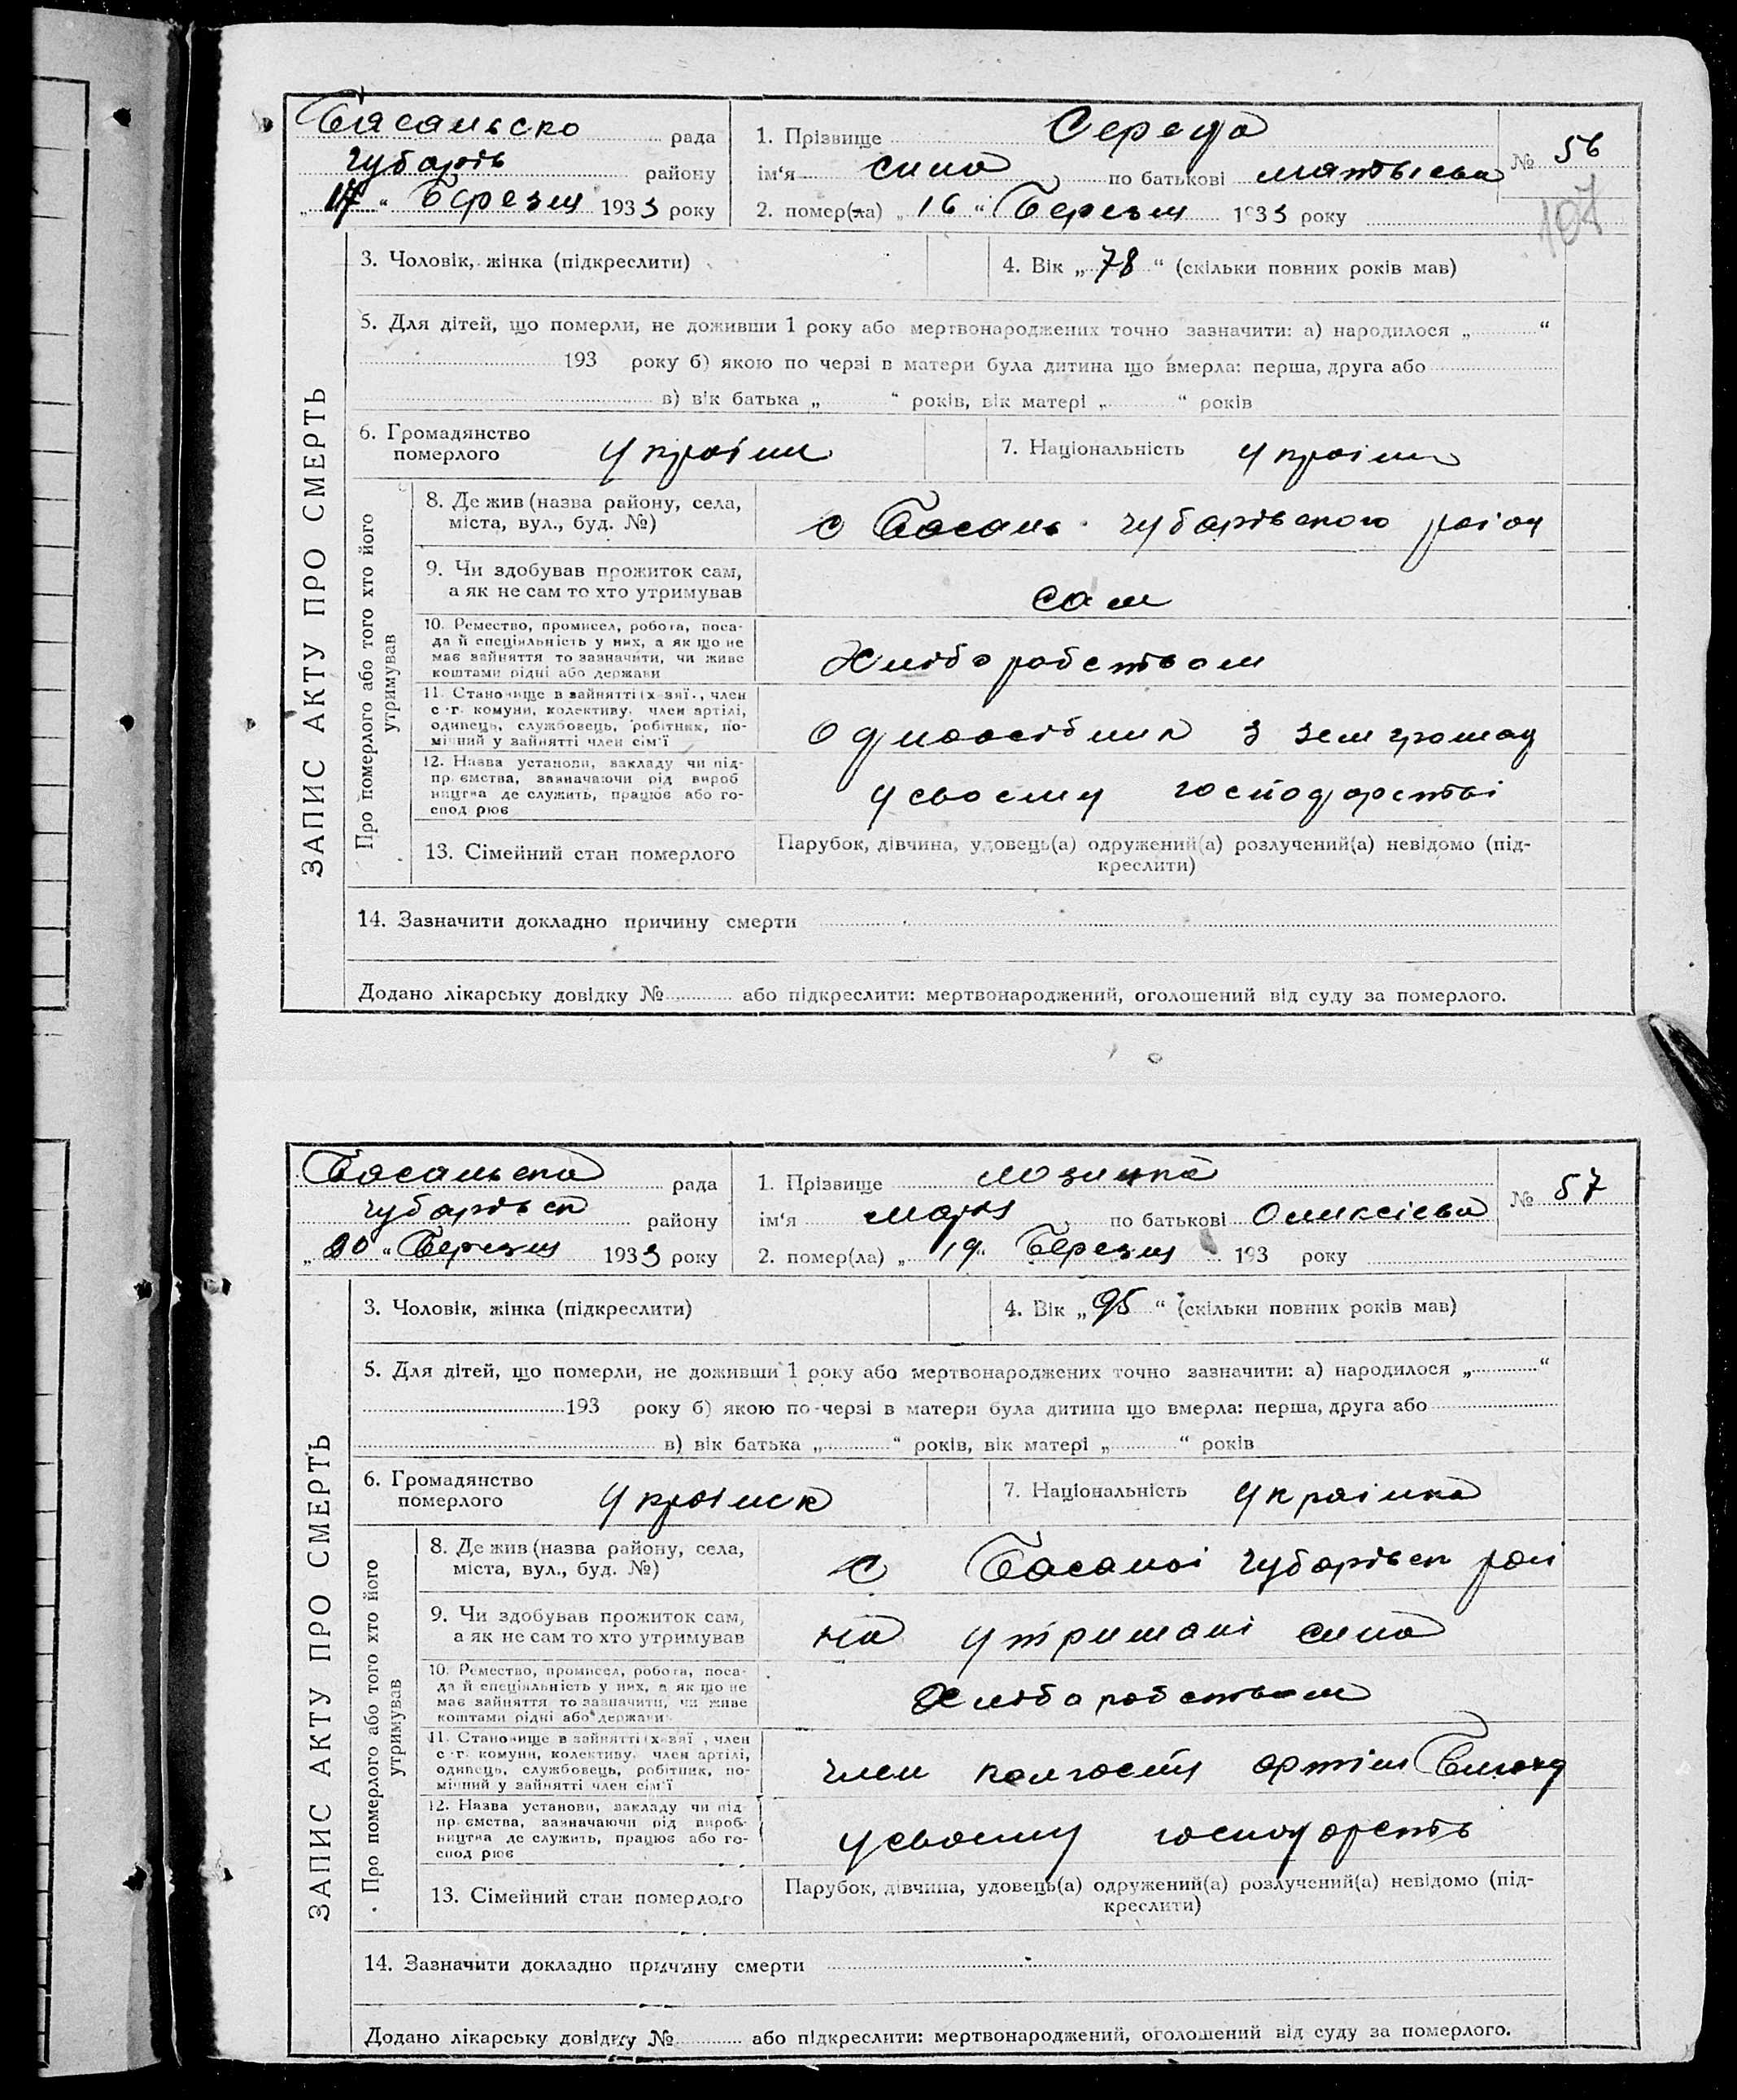 Басансько рада
Чубарів району
„17“ Березня 1933 року
1. Прізвище Середа
ім‘я по батькові
2. помер(ла) „16“ Березня 1933 року
№ 56
107
3. Чоловік, жінка (підкреслити)
4. Вік „78“ (скільки повних років мав)
5. Для дітей, що померли, не доживши 1 року або мертвонароджених точно зазначити: а) народилося „ “
193 року б) якою по черзі в матери була дитина що вмерла: перша, друга або
в) вік батька „ “ років, вік матері „ “ років
6. Громадянство
померлого
україн
7. Національність україн
ЗАПИС АКТУ ПРО СМЕРТЬ
Про померлого або того хто його
утримував
8. Де жив (назва району, села,
міста, вул., буд. №)
с Басань Чубарівского раіону
9. Чи здобував прожиток сам,
а як не сам то хто утримував
сам
10. Ремество, промисел, робота, поса-
да й спеціяльність у них, а як що не
має зайняття то зазначити, чи живе
коштами рідні або держави
Хліборобством
11. Становище в зайнятті (х-зяї., член
с.-г. комуни, колективу, член артілі,
одинець, службовець, робітник, по-
мічний у зайнятті член сім‘ї
Одноосібник з зем громад
12. Назва установи, закладу чи під-
пр ємства, зазначаючи рід вироб
ництва де служить, працює або го-
спод рює
усвоєму господарстві
13. Сімейний стан померлого
Парубок, дівчина, удовець(а) одружений(а) розлучений(а) невідомо (під-
креслити)
14. Зазначити докладно причину смерти
Додано лікарську довідку № або підкреслити: мертвонароджений, оголошений від суду за померлого.
Басанська рада
Чубарівск району
„20“ Березня 1933 року
1. Прізвище
ім‘я Марія по батькові Оликсієва
2. помер(ла) „19“ Березня 193 року
№ 57
3. Чоловік, жінка (підкреслити)
4. Вік „95“ (скільки повних років мав)
5. Для дітей, що померли, не доживши 1 року або мертвонароджених точно зазначити: а) народилося „ “
193 року б) якою по черзі в матери була дитина що вмерла: перша, друга або
в) вік батька „ “ років, вік матері „ “ років
6. Громадянство
померлого
українск
7. Національність українка
ЗАПИС АКТУ ПРО СМЕРТЬ
Про померлого або того хто його
утримував
8. Де жив (назва району, села,
міста, вул., буд. №)
с Басані Чубарівск раі
9. Чи здобував прожиток сам,
а як не сам то хто утримував
на утримані сина
10. Ремество, промисел, робота, поса-
да й спеціяльність у них, а як що не
має зайняття то зазначити, чи живе
коштами рідні або держави
Хліборобством
11. Становище в зайнятті (х-зяї , член
с.-г. комуни, колективу, член артілі,
одинець, службовець, робітник, по-
мічний у зайнятті член сім‘ї
член колгоспу артіли
12. Назва установи, закладу чи під-
пр ємства, зазначаючи рід вироб-
ництва де служить, працює або го-
спод рює
усвоєму господарств
13. Сімейний стан померлого
Парубок, дівчина, удовець(а) одружений(а) розлучений(а) невідомо (під-
креслити)
14. Зазначити докладно причину смерти
Додано лікарську довідку № або підкреслити: мертвонароджений, оголошений від суду за померлого.